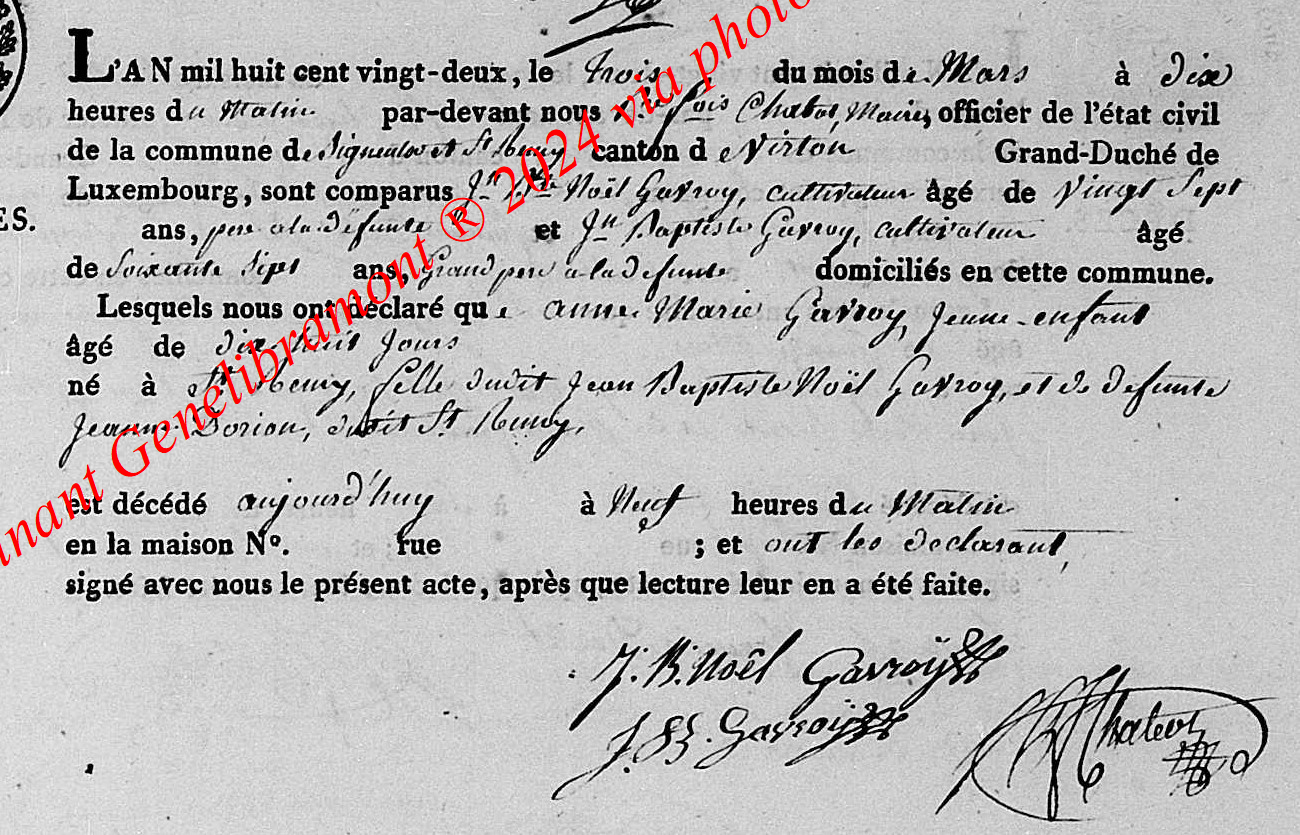 L'AN mil huit cent vingt-deux, le trois du mois de Mars à dix
heures du Matin par-devant nous fois Chabot, Maire, officier de l'état civil
de la commune de Signeulx et St Remy canton de Virton Grand-Duché de
Luxembourg, sont comparus Jn Bte Noël Gavroy, cultivateur âgé de vingt sept
ES. ans, pere a la défunte et Jn Baptiste Gavroy, cultivateur âgé
de Soixante Sept ans, Grand pere a la defunte domiciliés en cette commune.
Lesquels nous ont déclaré que anne Marie Gavroy, Jeune enfant
âgé de dix huit Jours
né à St Remy, fille dudit Jean Baptiste Noël Gavroy, et de defunte
Jeanne Dorion, dudit St Remy,
est décédé aujourd'huy à Neuf heures du Matin
en la maison No. rue ; et ont les declarant,
signé avec nous le présent acte, après que lecture leur en a été faite.
J. B. Noël Gavroÿ
J. B. Gavroÿ
Chabot
nant Genelibramont ® 2024 via photo